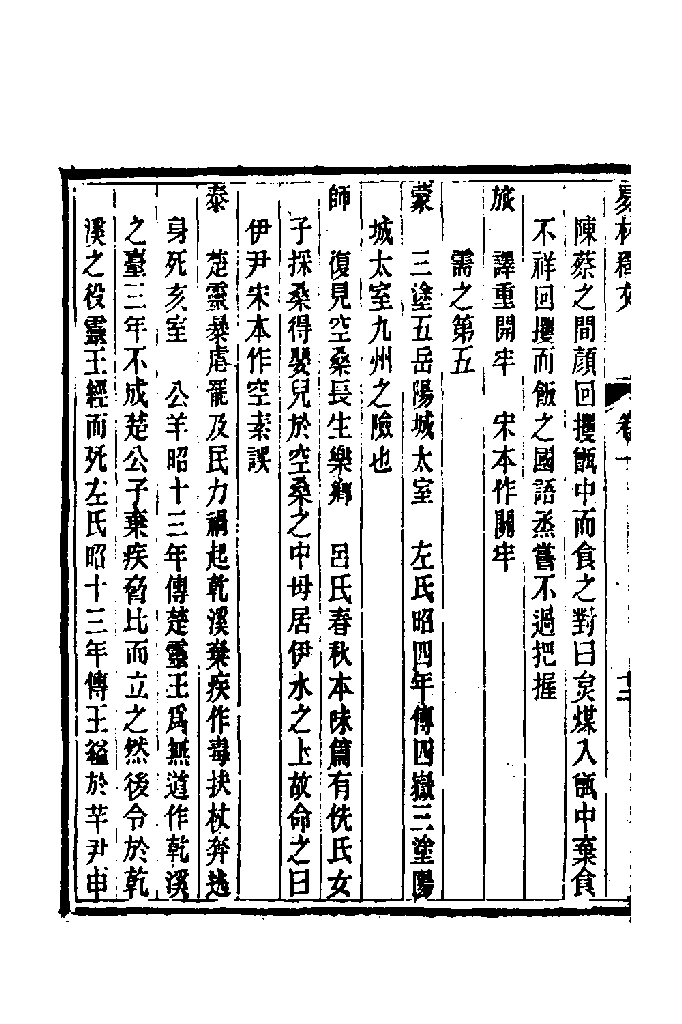 易林釋文　卷一　十二
陳蔡之間顏回攫甑中而食之對曰炱煤入甑中棄食
不祥回攫而飯之國語烝嘗不過把握
旅　譯重開牢　宋本作關牢
需之第五
蒙　三塗五岳陽城太室　左氏昭四年傳四嶽三塗陽
城太室九州之險也
師　復見空桑長生樂鄉　呂氏春秋本味篇有侁氏女
子採桑得嬰兒於空桑之中母居伊水之上故命之曰
伊尹宋本作空素誤
泰　楚靈暴虐罷及民力禍起乾溪棄疾作毒扶杖奔逃
身死亥室　公羊昭十三年傳楚靈王爲無道作乾溪
之臺三年不成楚公子棄疾脅比而立之然後令於乾
溪之役靈王經而死左氏昭十三年傳王縊於芊尹申